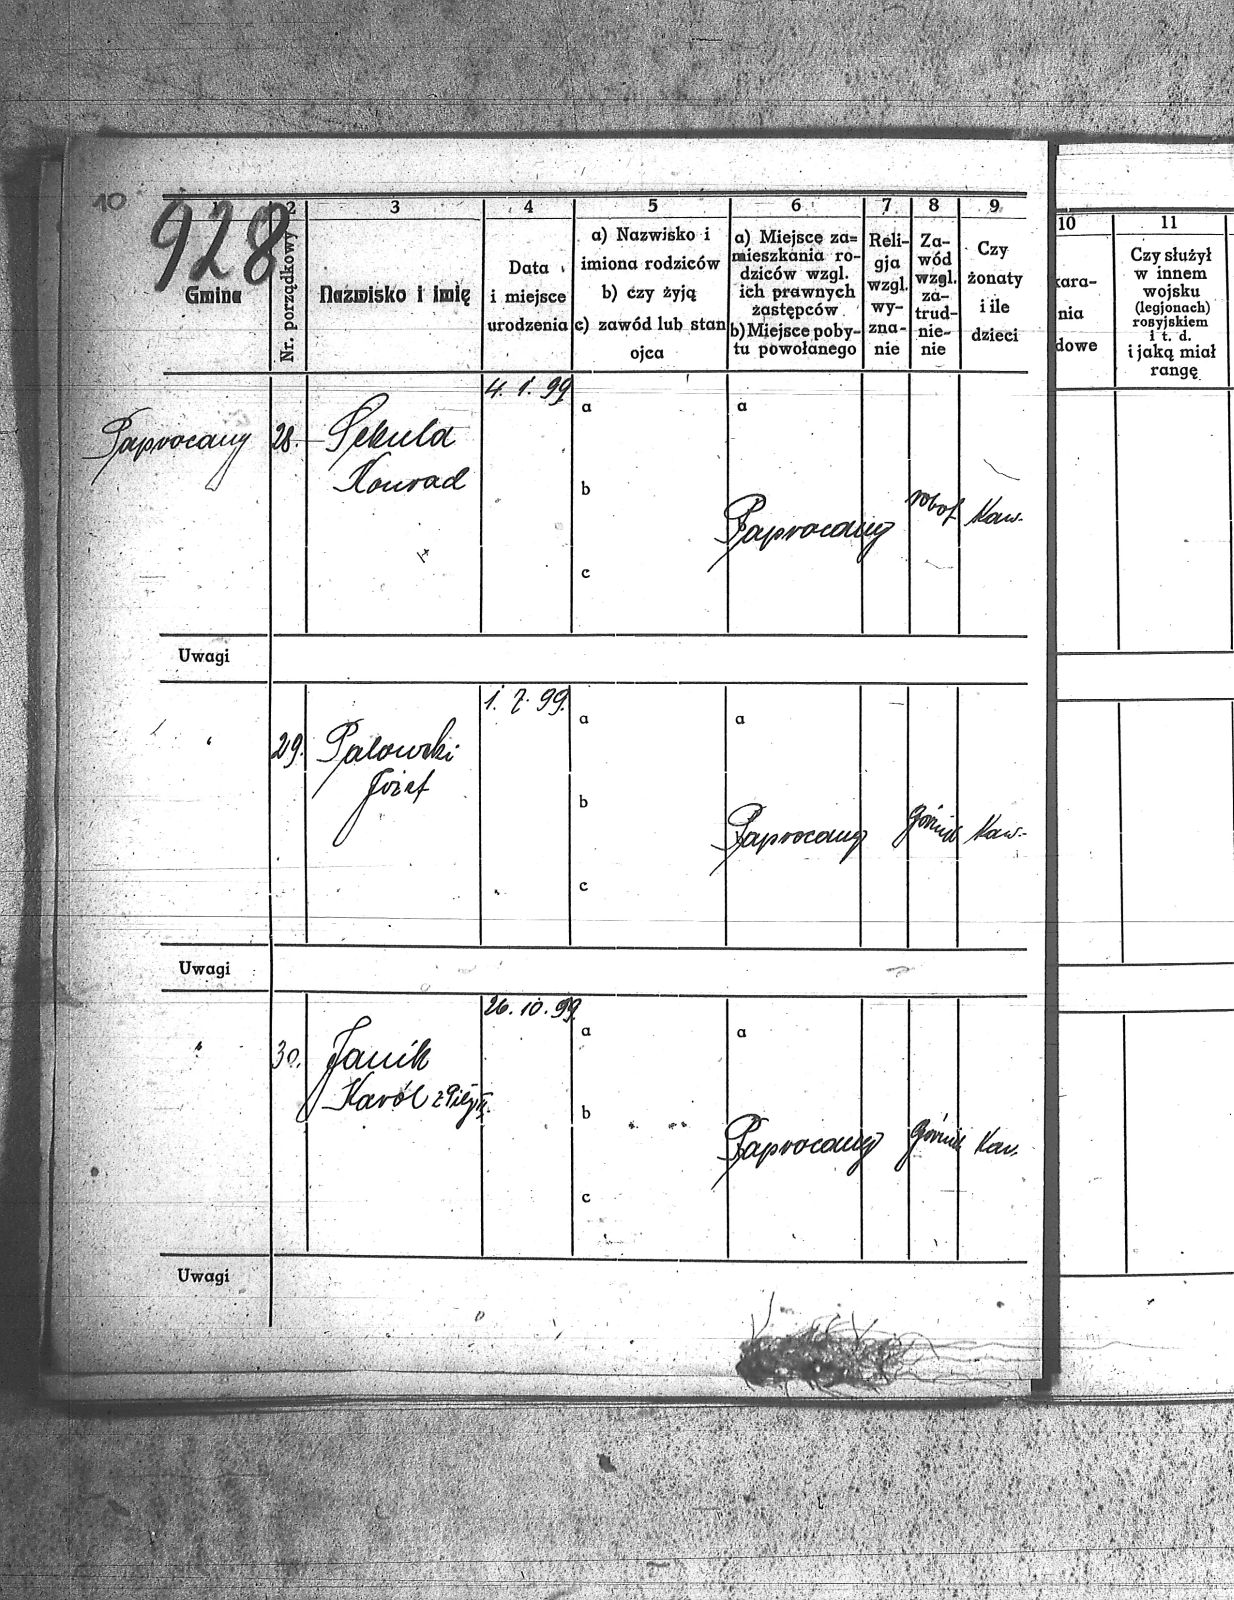 10
928
1 2 3 4 5 6 7 8 9 10 11
Gmina
Nr. porządkowy
Nazwisko i imię
Data
i miejsce
urodzenia
a) Nazwisko i
imiona rodziców
b) czy żyją
c) zawód lub stan
ojca
a) Miejsce za=
mieszkania ro-
dziców wzgl.
ich prawnych
zastępców
b) Miejsce poby-
tu powołanego
Reli-
gja
wzgl.
wy-
zna-
nie
Za-
wód
wzgl.
za-
trud-
nie-
nie
Czy
żonaty
i ile
dzieci
kara-
nia
dowe
Czy służył
w innem
wojsku
(legjonach)
rosyjskiem
i t. d.
i jaką miał
rangę
4. 1. 99
a a
Paprocany 28. Sekula
Konrad
b
Paprocany robot Kaw.
c
Uwagi
1. 7. 99.
a a
" 29. Palowski
Józef
b
Paprocany Górnik Kaw.
c
Uwagi
26. 10. 99.
a a
" 30. Janik
Karól
b
Paprocany Górnik Kaw.
c
Uwagi